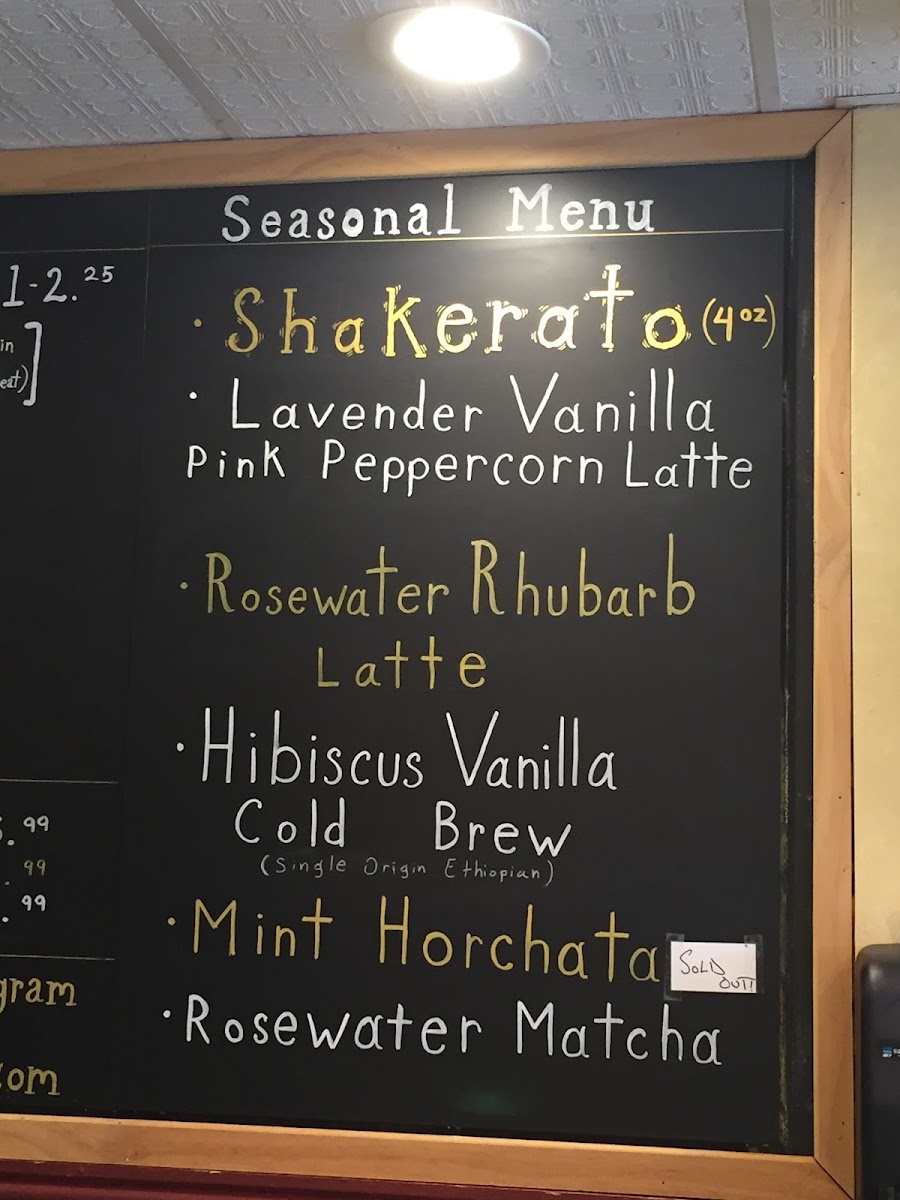 Seasonal Menu
1-2.25
in
eat)
· Shakerato (4oz)
· Lavender Vanilla
Pink Peppercorn Latte
· Rosewater Rhubarb
Latte
· Hibiscus Vanilla
Cold Brew
(Single Origin Ethiopian)
· Mint Horchata
SOLD
OUT!
· Rosewater Matcha
.99
.99
.99
gram
com